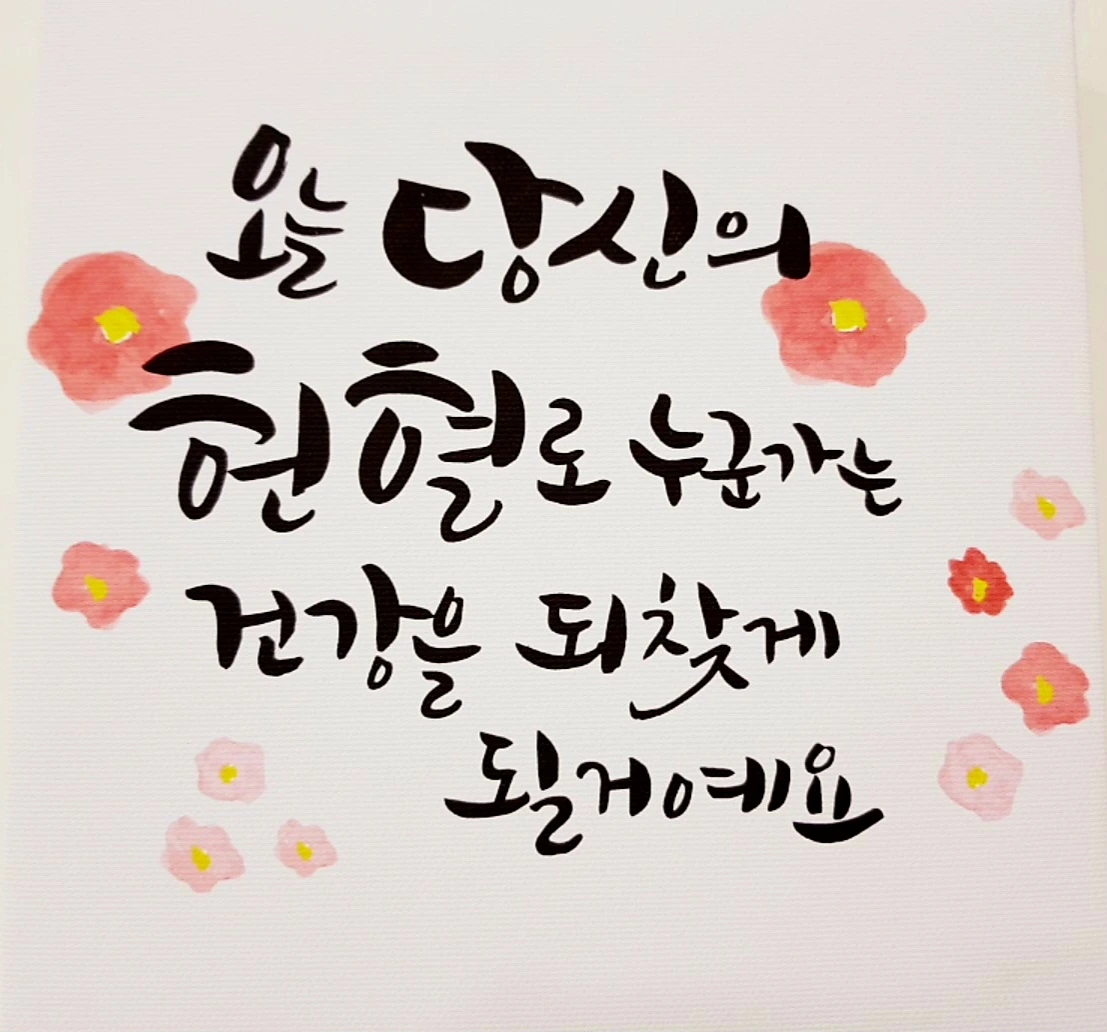 오늘 당신의
헌혈로 누군가는
건강을 되찾게
될거예요